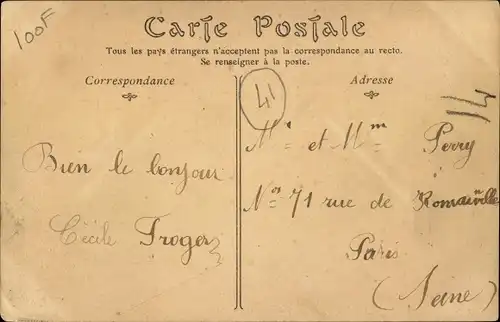 100F
Carte Postale
Tous les pays étrangers n'acceptent pas la correspondance au recto.
Se renseigner à la poste.
Correspondance
Adresse
41
Bien le bonjour
Cécile Troger
Mr et Mm Perry
No 71 rue de Romainville
Paris
(Seine)